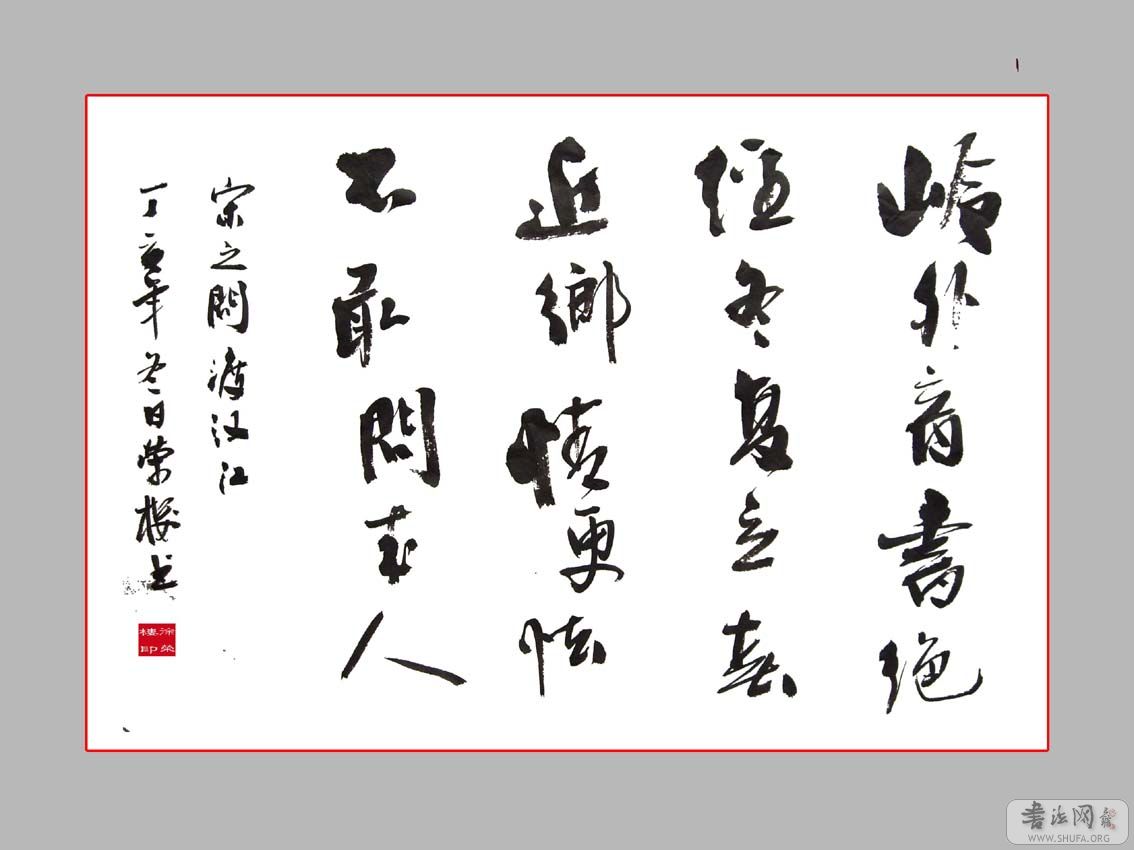 岭外音書絕
經冬复立春
近鄉情更怯
不敢問来人
宋之問渡汉江
丁亥年冬日榮楼书
徐荣
樓印
書法网
WWW.SHUFA.ORG